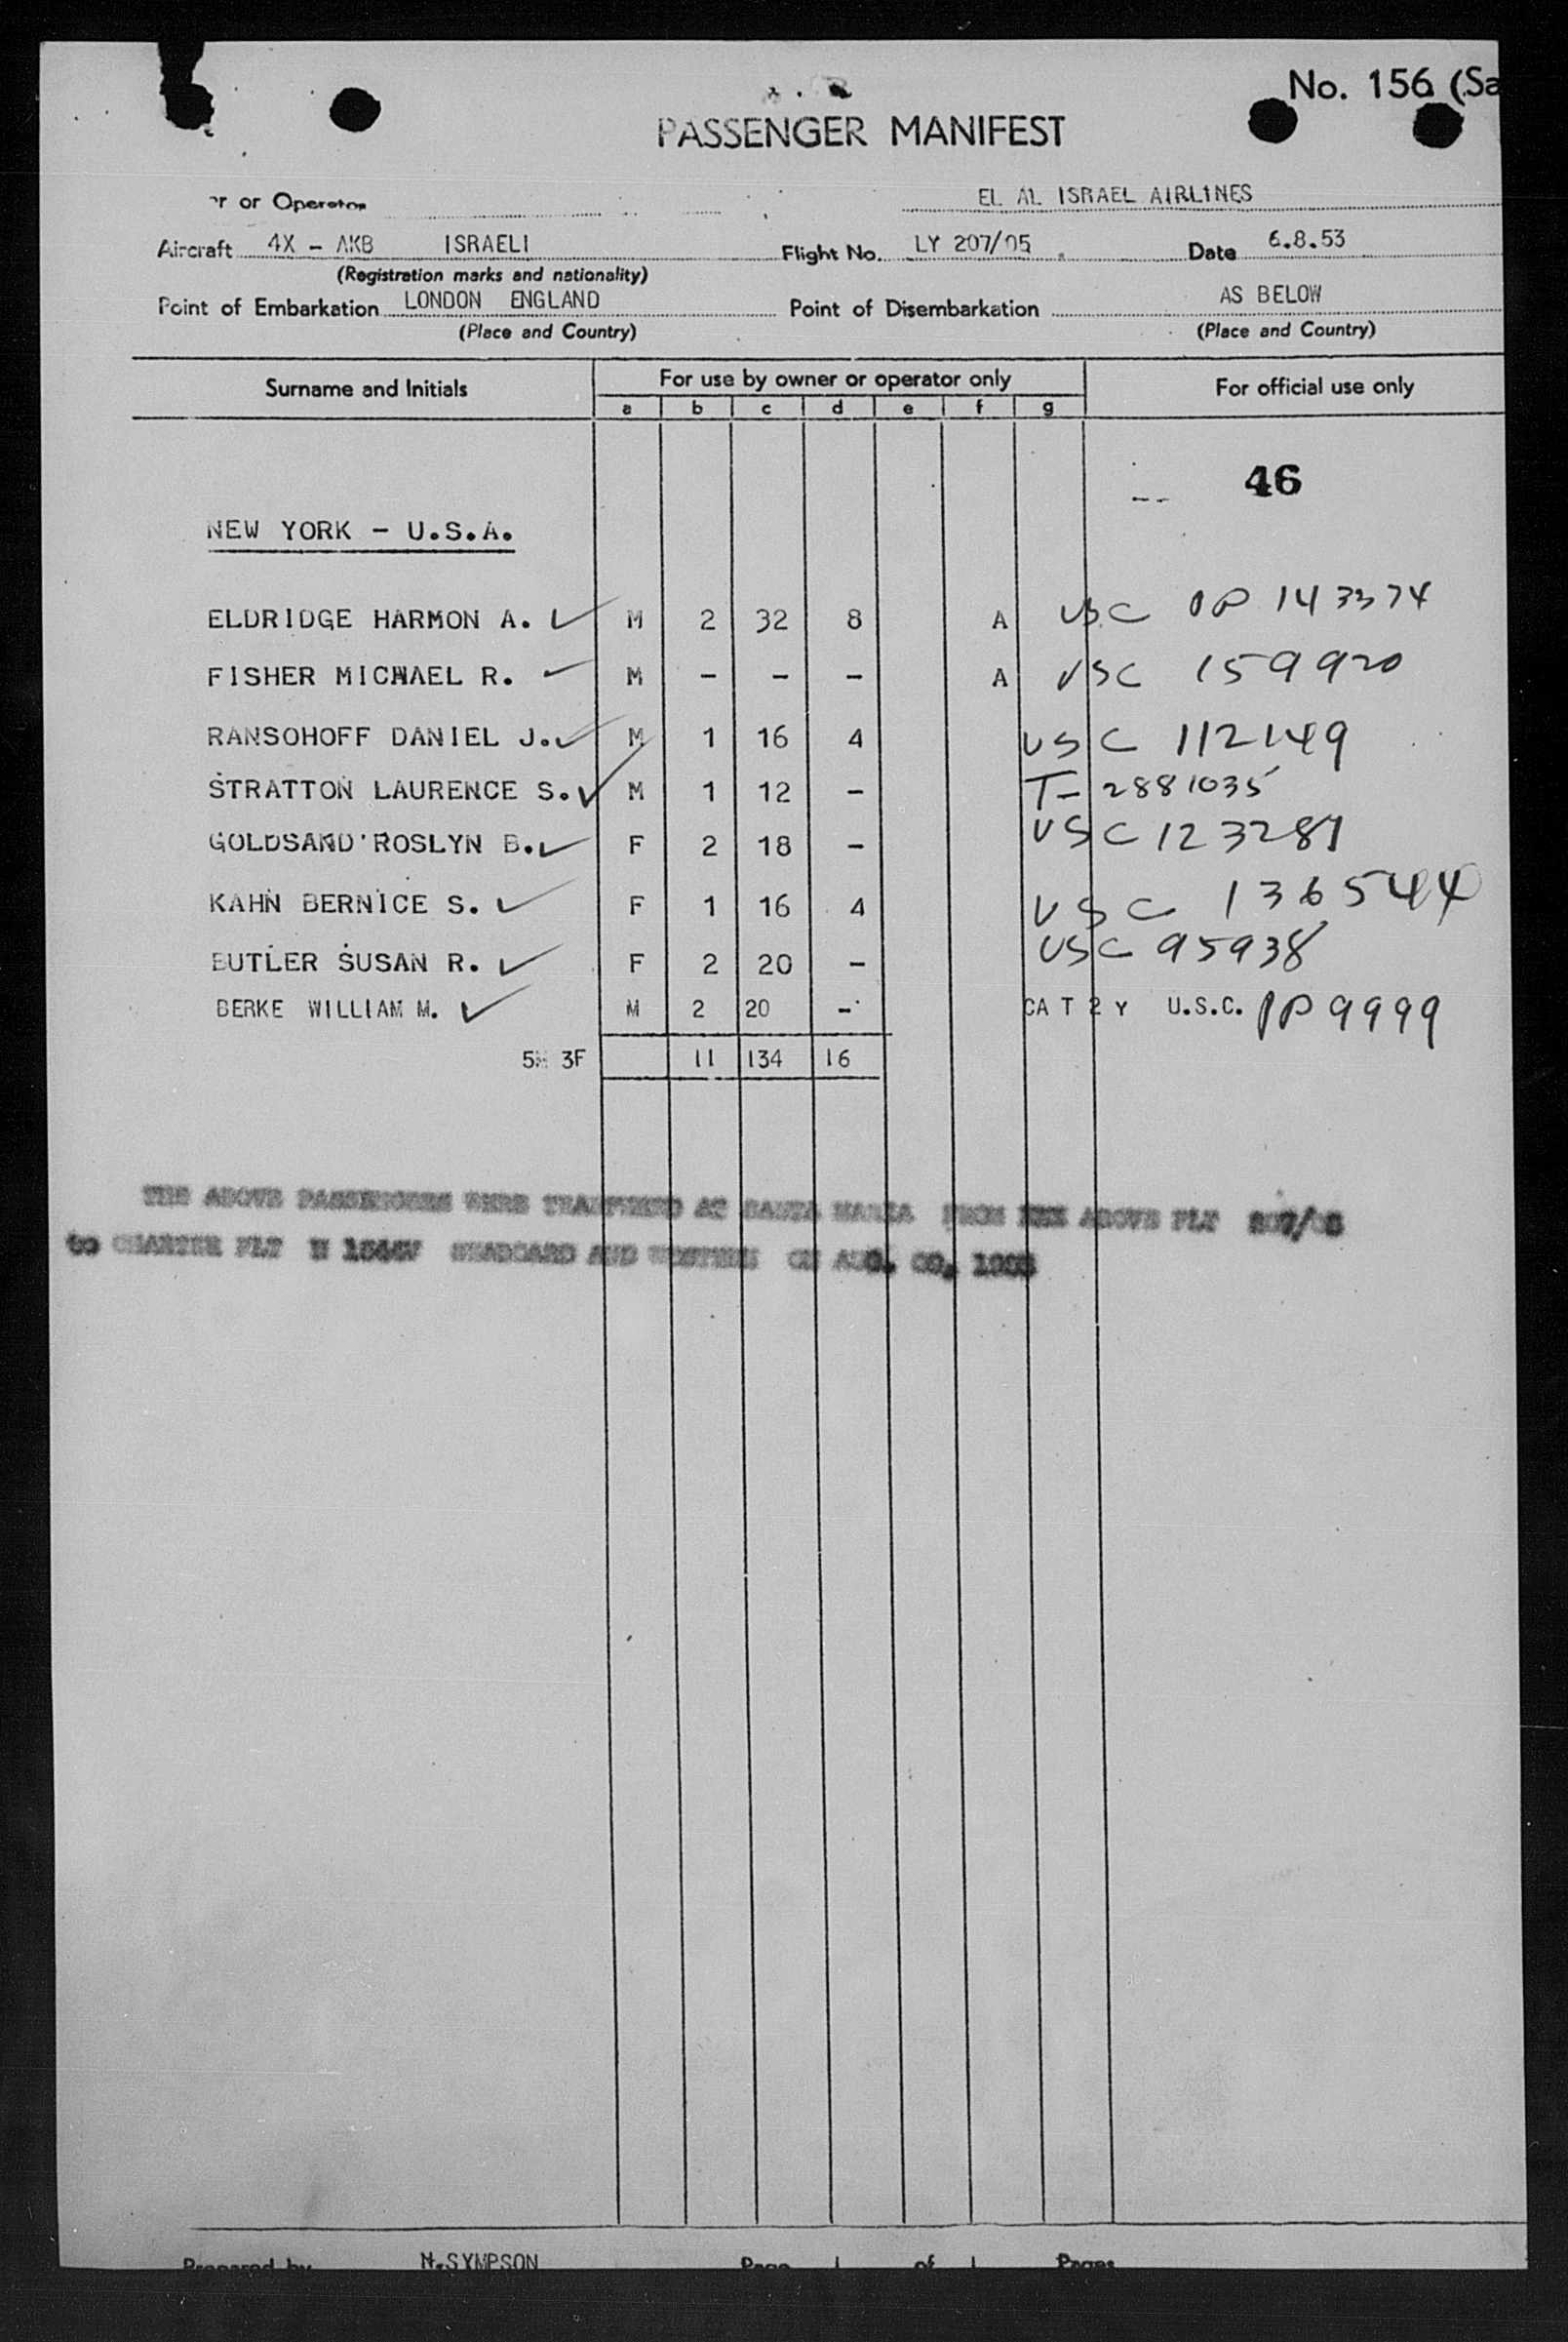 No. 156 (Sa
PASSENGER MANIFEST
r or Operator EL AL ISRAEL AIRLINES
Aircraft 4X - AKB ISRAELI Flight No. LY 207/05 Date 6.8.53
(Registration marks and nationality)
Point of Embarkation LONDON ENGLAND Point of Disembarkation AS BELOW
(Place and Country) (Place and Country)
Surname and Initials For use by owner or operator only For official use only
a b c d e f g
46
NEW YORK - U.S.A.
ELDRIDGE HARMON A. ✓ M 2 32 8 A USC OP 143374
FISHER MICHAEL R. ✓ M - - - A USC 159920
RANSOHOFF DANIEL J. ✓ M 1 16 4 USC 112149
STRATTON LAURENCE S. ✓ M 1 12 - T- 2881035
GOLDSAND ROSLYN B. ✓ F 2 18 - USC 123287
KAHN BERNICE S. ✓ F 1 16 4 USC 136544
BUTLER SUSAN R. ✓ F 2 20 - USC 95938
BERKE WILLIAM M. ✓ M 2 20 - CA T 2 Y U.S.C. OP 9999
5M 3F 11 134 16
THE ABOVE PASSENGERS WERE AT SANTA MARIA FROM THE ABOVE FLT 207/05
to CHARTER FLT N AND WESTERN ON AUG.
Prepared by N.SYMPSON Page 1 of 1 Pages